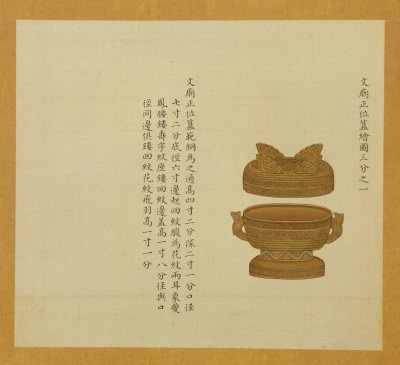 文廟正位簋繪圖三分之一
文廟正位簋範銅為之通高四寸二分深二寸一分口徑
七寸二分底徑六寸邊起回紋腹為花紋兩耳象夔
鳳腰鏤壽字紋座鏤回紋邊蓋高一寸八分徑與口
徑同邊俱鏤回紋花紋飛羽高一寸一分